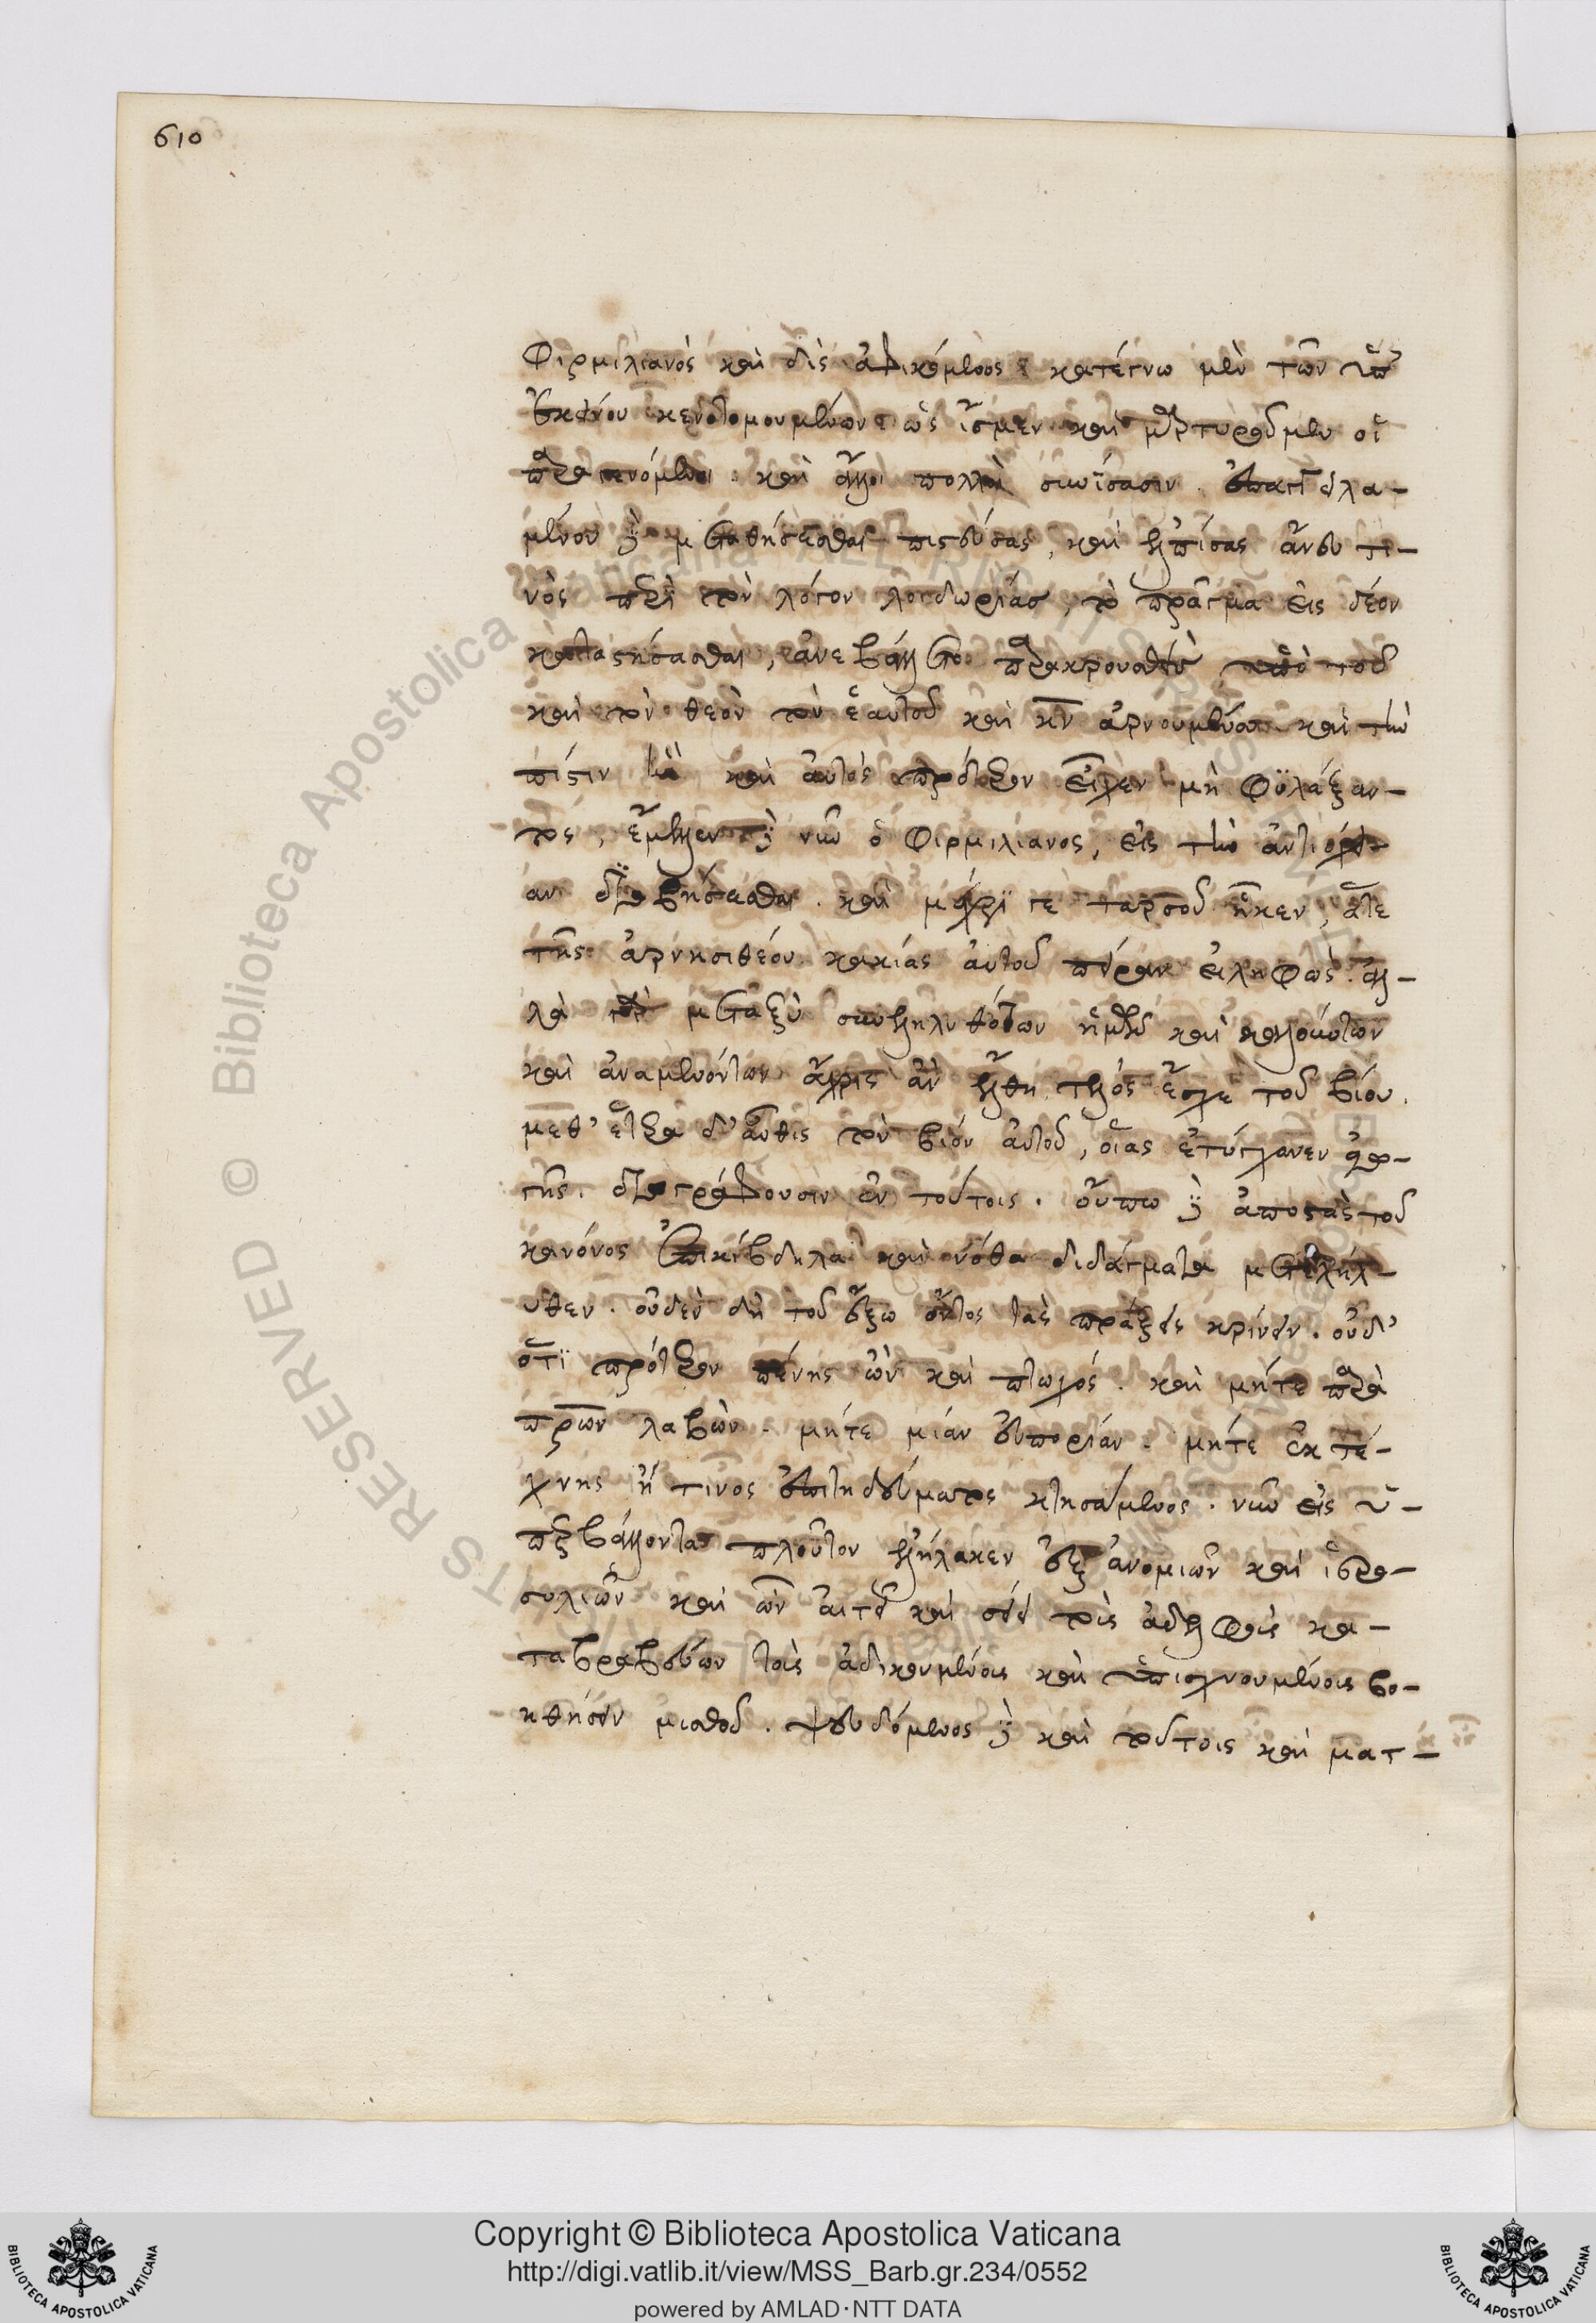 610
Φιρμιλιανὸς καὶ δὶς ἀφικόμενος κατέγνω μὲν τῶν ὑπ'
ἐκείνου καινοτομουμένων ὡς ἴσμεν καὶ μαρτυροῦμεν οἱ
παραγενόμενοι. καὶ ἄλλοι πολλοὶ συνίσασιν. ἐπαγγειλα-
μένου δὲ μεταθήσεσθαι πιστεύσας, καὶ ἐλπίσας ἄνευ τι-
νὸς περὶ τὸν λόγον λοιδορίας, τὸ πρᾶγμα εἰς δέον
καταστήσασθαι, ἀνεβάλλετο παρακρουσθεὶς ὑπὸ τοῦ
καὶ τὸν θεὸν τὸν ἑαυτοῦ καὶ κν ἀρνουμένου καὶ τὴν
πίστιν ἣν καὶ αὐτὸς πρότερον εἶχεν μὴ φυλάξαν-
τος, ἔμελλεν δὲ νῦν ὁ Φιρμιλιανος, εἰς τὴν ἀντιόχει-
αν διαβήσεσθαι. καὶ μέχρι τε ταρσοῦ ἧκεν, ἅτε
τῆς ἀρνησιθέου κακίας αὐτοῦ πεῖραν εἰληφὼς. ἀλ-
λὰ μεταξὺ συνεληλυθότων ἡμῶν καὶ καλούντων
καὶ ἀναμενόντων ἄχρις ἂν ἔλθη τέλος ἔσχε τοῦ βίου.
μεθ' ἕτερα δ' αὖθις τὸν βίον αὐτοῦ, οἵας ἐτύγχανεν ἀγω-
γῆς. διαγράφουσιν ἐν τούτοις. ὅπου δὲ ἀποστὰς τοῦ
κανόνος ἐπι κίβδηλα καὶ νόθα διδάγματα μετελήλ-
υθεν. οὐδὲν δὴ τοῦ ἔξω ὄντος τὰς πράξεις κρίνειν. οὐδ'
ὅτι πρότερον πένης ὢν καὶ πτωχός. καὶ μήτε παρὰ
πρων λαβὼν. μήτε μίαν εὐπορίαν. μήτε ἐκ τέ-
χνης ἤ τινος ἐπιτηδεύματος κτησάμενος. νῦν εἰς ὑ-
περβάλλοντα πλοῦτον ἐλήλακεν ἐξ ἀνομιῶν καὶ ἱερο-
συλιῶν καὶ ὧν αἰτεῖ καὶ σείει τοὺς ἀδελφοὺς κα-
ταβραβεύων τοὺς ἀδικουμένους καὶ ὑπισχνουμένους βο-
ηθήσειν μισθοῦ. ψευδόμενος δὲ καὶ τούτους καὶ ματ-
Copyright © Biblioteca Apostolica Vaticana
http://digi.vatlib.it/view/MSS_Barb.gr.234/0552
powered by AMLAD·NTT DATA